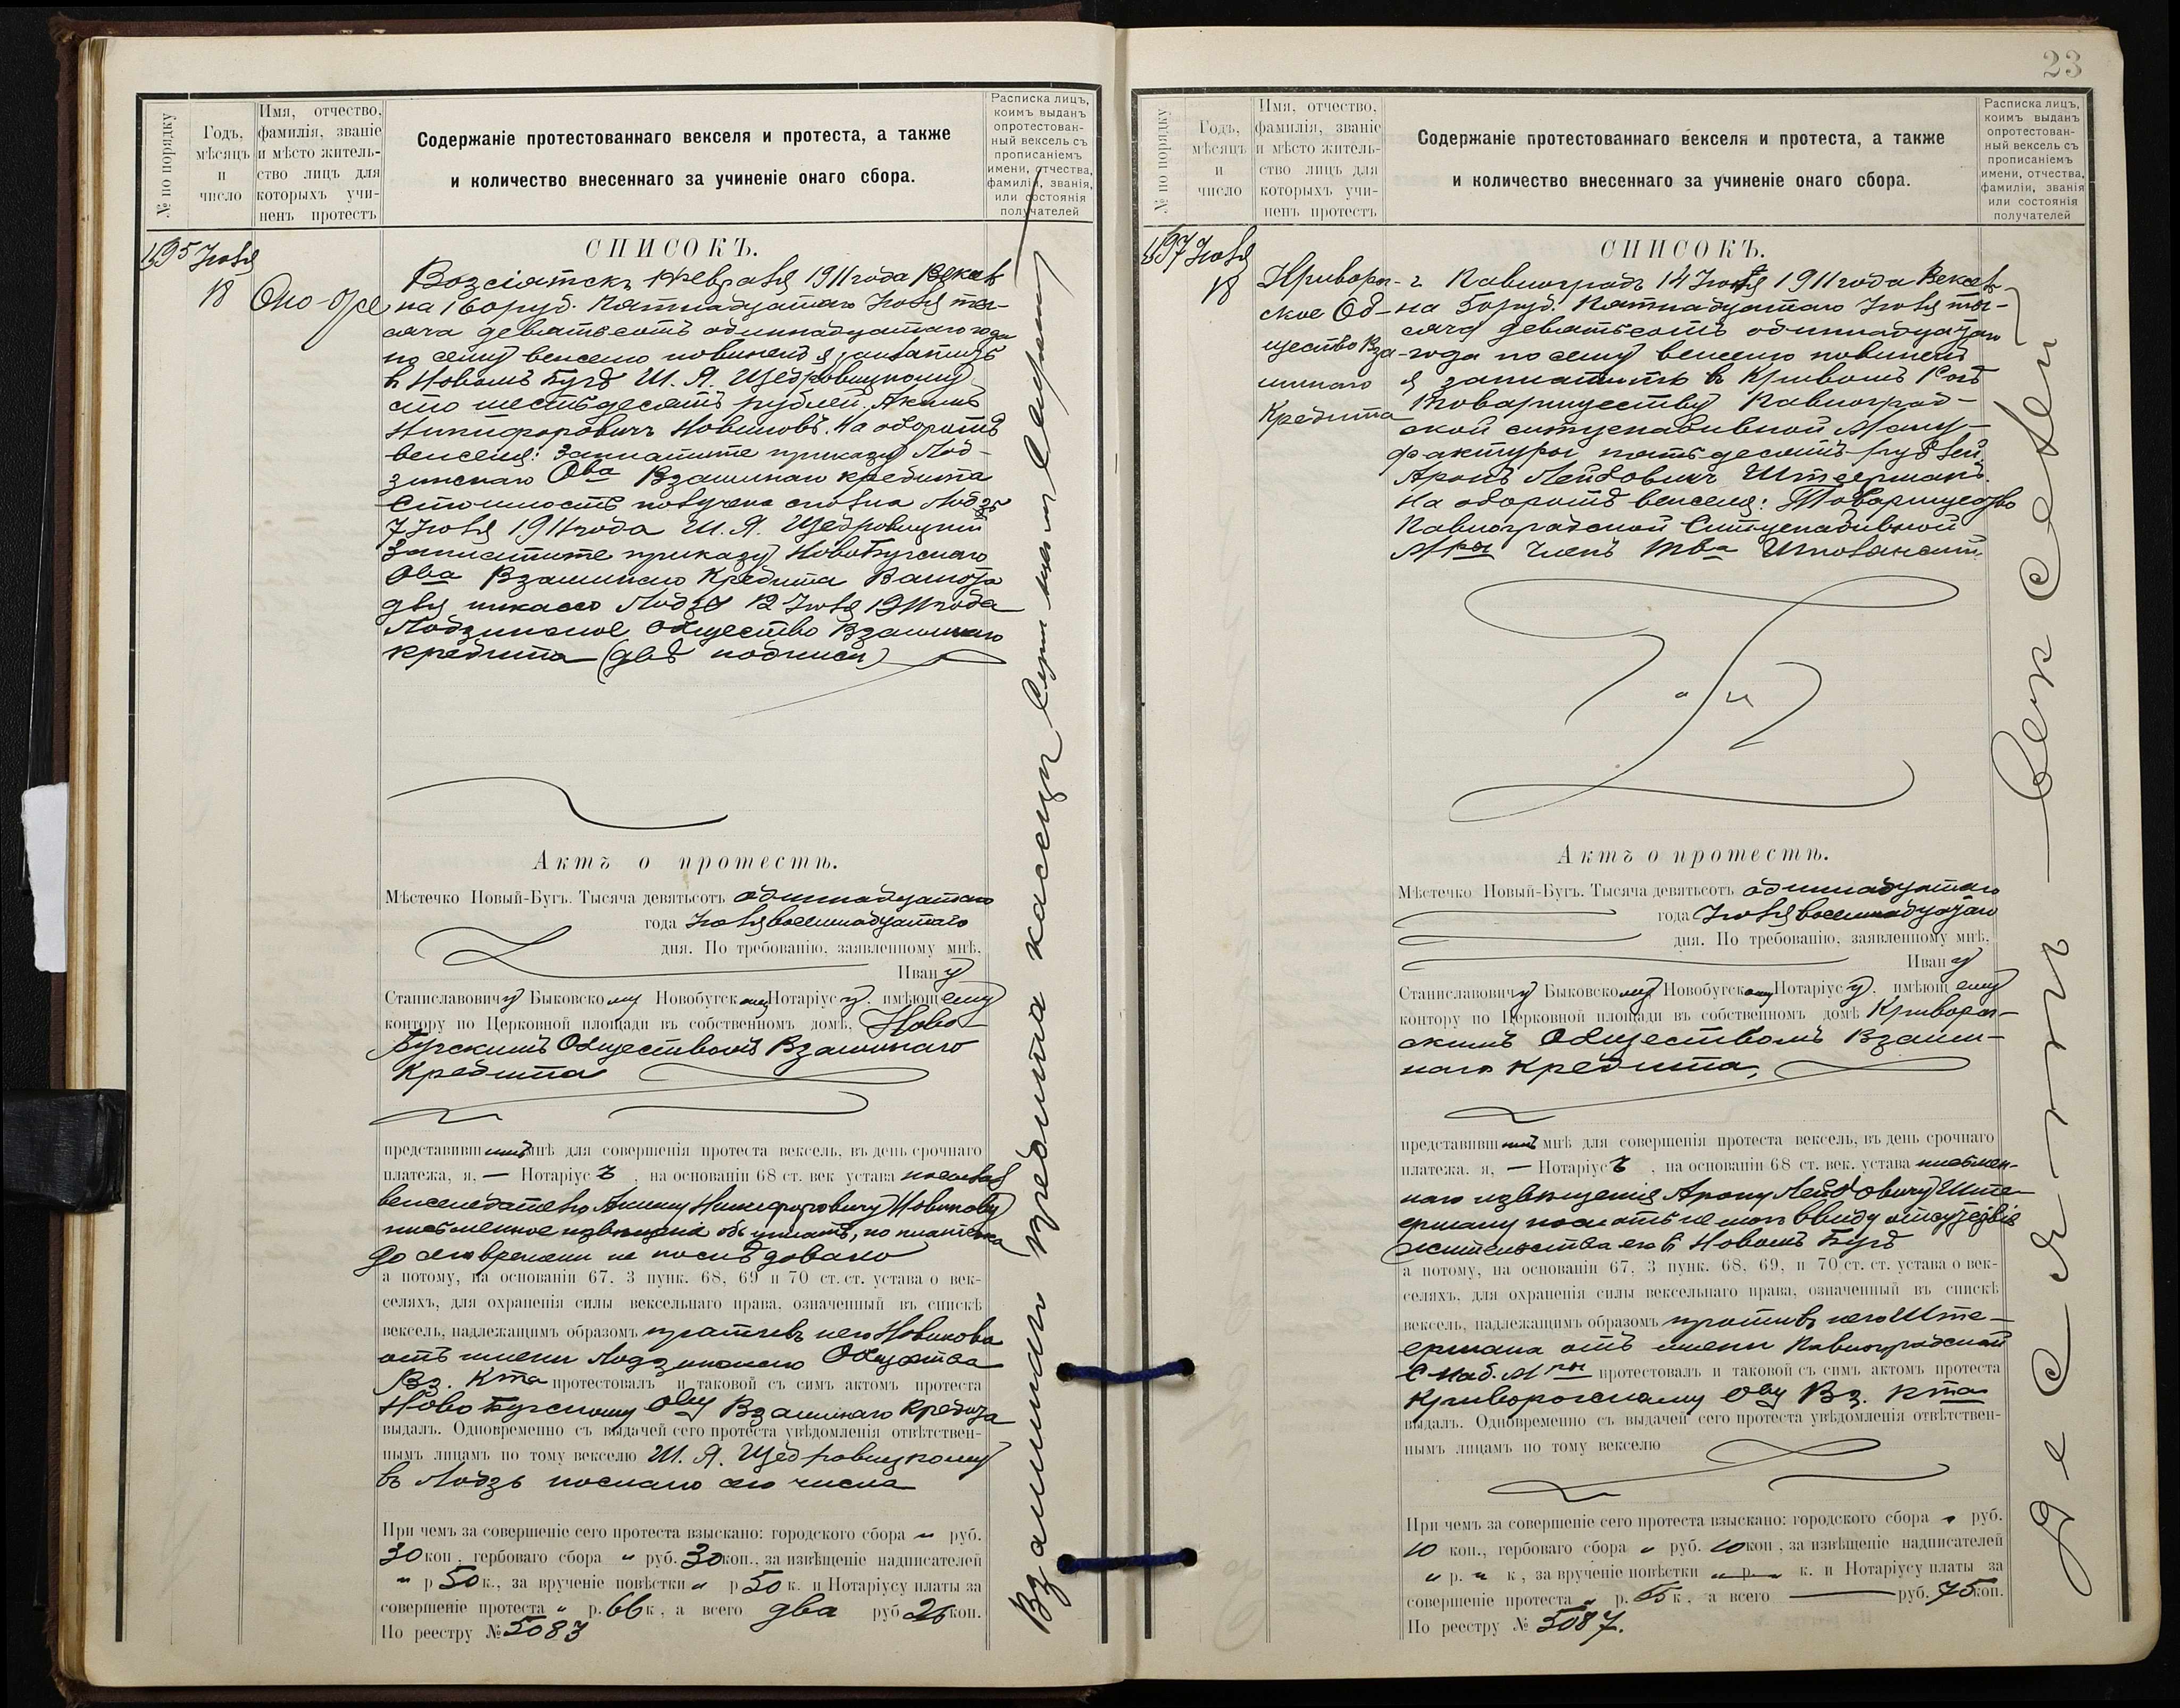 № по порядку
Годъ, мѣсяцъ и число
Имя, отчество, фамилія, званіе и мѣсто жительство лицъ для которыхъ учиненъ протестъ
Содержаніе протестованнаго векселя и протеста, а также
и количество внесеннаго за учиненіе онаго сбора.
Расписка лицъ, коимъ выданъ опротестованный вексель съ прописаніемъ имени, отчества, фамиліи, званія, или состоянія получателей
195 Іюля
18
Оно-же
СПИСОКЪ.
февраля 1911 года Вексель
на 160 руб. Пятнадцатаго Іюля ты-
сяча девятьсотъ одиннадцатаго года
по сему векселю повиненъ я заплатить
въ Новомъ Бугѣ Ш. Я. Щедровицкому
сто шестьдесятъ рублей. Акимъ
Никифоровичъ Новиковъ. На оборотѣ
векселя: Заплатите приказу Лод-
зинскаго Ова Взаимнаго кредита
Стоимость получена сполна Лодзь
7 Іюля 1911 года Ш. Я. Щедровицкій
Заплатите приказу НовоБугскаго
Ова Взаимнаго Кредита Валюта
для инкассо Лодзь 12 Іюля 1911 года
Лодзинское Общество Взаимнаго
кредита (двѣ подписи)
Актъ о протестѣ.
Мѣстечко Новый-Бугъ. Тысяча девятьсотъ одиннадцатаго
года Іюля восемнадцатаго
дня. По требованію, заявленному мнѣ,
Ивану
Станиславовичу Быковскому Новобугскому Нотаріусу, имѣющему
контору по Церковной площади въ собственномъ домѣ, Ново-
Бугскимъ Обществомъ Взаимнаго
Кредита
представившимъ мнѣ для совершенія протеста вексель, въ день срочнаго
платежа, я, — Нотаріусъ, на основаніи 68 ст. век устава послалъ
векселедателю Акиму Никифоровичу Новикову
письменное извѣщеніе объ уплатѣ, но платежа
до сего времени не послѣдовало
а потому, на основаніи 67. 3 пунк. 68, 69 и 70 ст. ст. устава о век-
селяхъ, для охраненія силы вексельнаго права, означенный въ спискѣ
вексель, надлежащимъ образомъ противъ него Новикова
отъ имени Лодзинскаго Общества
Вз. Кта протестовалъ и таковой съ симъ актомъ протеста
НовоБугскому Ову Взаимнаго Кредита
выдалъ. Одновременно съ выдачей сего протеста увѣдомленія отвѣтствен-
нымъ лицамъ по тому векселю Ш. Я. Щедровицкому
въ Лодзь послано сего числа
При чемъ за совершеніе сего протеста взыскано: городского сбора „ руб.
30 коп., гербоваго сбора „ руб. 30 коп., за извѣщеніе надписателей
„ р 50 к., за врученіе повѣстки „ р 50 к. и Нотаріусу платы за
совершеніе протеста „ р. 66 к, а всего два руб 26 коп.
По реестру № 5083
Взаимнаго кредита кассиръ
23
№ по порядку
Годъ, мѣсяцъ и число
Имя, отчество, фамилія, званіе и мѣсто жительство лицъ для которыхъ учиненъ протестъ
Содержаніе протестованнаго векселя и протеста, а также
и количество внесеннаго за учиненіе онаго сбора.
Расписка лицъ, коимъ выданъ опротестованный вексель съ прописаніемъ имени, отчества, фамиліи, званія или состоянія получателей
197 Іюля
18
Криворож-
ское Об-
щество Вза-
имнаго
Кредита
СПИСОКЪ.
г. Павлоградъ 14 1911 года Вексель
на 50 руб. Пятнадцатаго Іюля ты-
сяча девятьсотъ одиннадцатаго
года по сему векселю повиненъ
я заплатить въ Кривомъ Рогѣ
Товариществу Павлоград-
ской ситценабивной Ману-
фактуры пятьдесятъ рублей
Аронъ Лейбовичъ Штеерманъ.
На оборотѣ векселя: Товарищество
Павлоградской Ситценабивной
М-ры Членъ Тва
Актъ о протестѣ.
Мѣстечко Новый-Бугъ. Тысяча девятьсотъ одиннадцатаго
года Іюля восемнадцатаго
дня. По требованію, заявленному мнѣ,
Ивану
Станиславовичу Быковскому Новобугскому Нотаріусу, имѣющему
контору по Церковной площади въ собственномъ домѣ Криворож-
скимъ Обществомъ Взаим-
наго Кредита,
представившимъ мнѣ для совершенія протеста вексель, въ день срочнаго
платежа, я, — Нотаріусъ, на основаніи 68 ст. век. устава письмен-
наго извѣщенія Арону ЛейбовичуШте-
ерману послать не могъ ввиду отсутствія
жительства его въ Новомъ Бугѣ
а потому, на основаніи 67, 3 пунк. 68, 69, и 70 ст. ст. устава о век-
селяхъ, для охраненія силы вексельнаго права, означенный въ спискѣ
вексель, надлежащимъ образомъ противъ негоШте-
ермана отъ имени Павлоградской
С наб. М-ры протестовалъ и таковой съ симъ актомъ протеста
Криворожскому Ову Вз. Кта
выдалъ. Одновременно съ выдачей сего протеста увѣдомленія отвѣтствен-
нымъ лицамъ по тому векселю
При чемъ за совершеніе сего протеста взыскано: городского сбора „ руб.
10 коп., гербоваго сбора „ руб. 10 коп, за извѣщеніе надписателей
„ р. „ к, за врученіе повѣстки „ р. „ к. и Нотаріусу платы за
совершеніе протеста „ р. 55 к, а всего — руб. 75 коп.
По реестру № 5087.